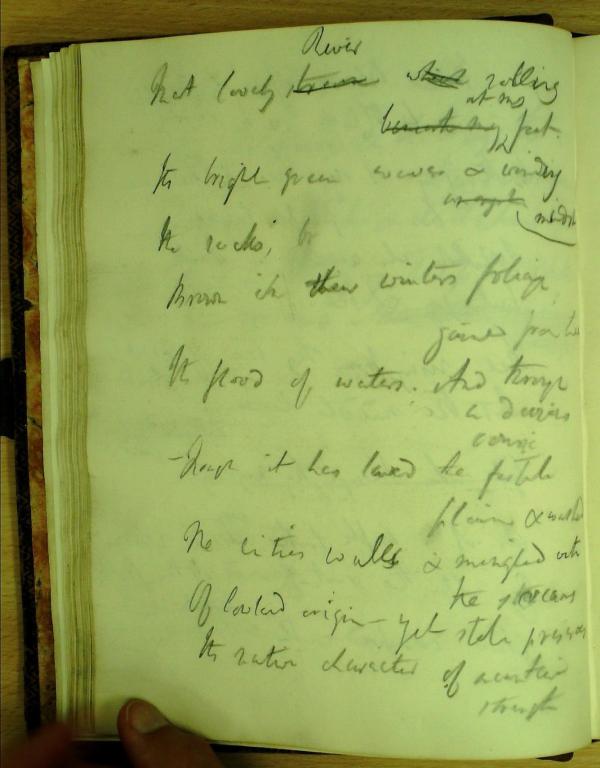 River
That lovely stream which rolling
at my
beneath my feet.
Its bright green waves & winding
The rocks, br
Brown in their winters foliage
gained from the
Its flood of waters. And though
a devious
course
Though it has laved the fertile
plains & washed
The cities walls & mingled with
the streams
Of lowland origin – yet still preserves
Its native character of mountain
strength